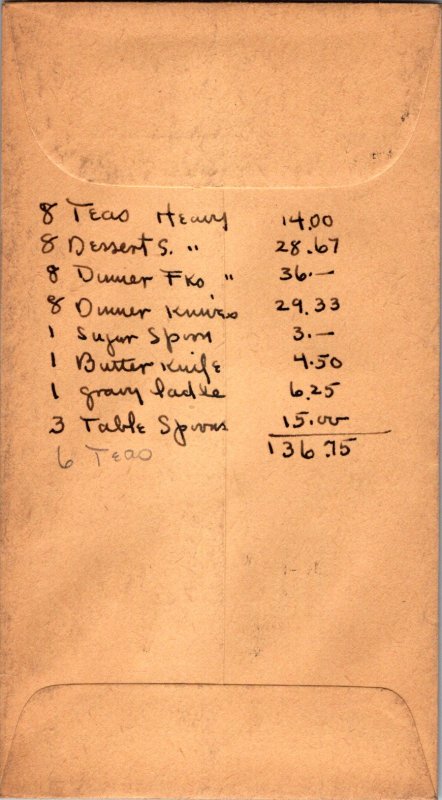 8 Teas Heavy 14.00
8 Dessert S. " 28.67
8 Dinner Fks " 36.—
8 Dinner Knives 29.33
1 Sugar Spoon 3.—
1 Butter Knife 4.50
1 gravy ladle 6.25
3 Table Spoons 15.00
6 Teas 136.75